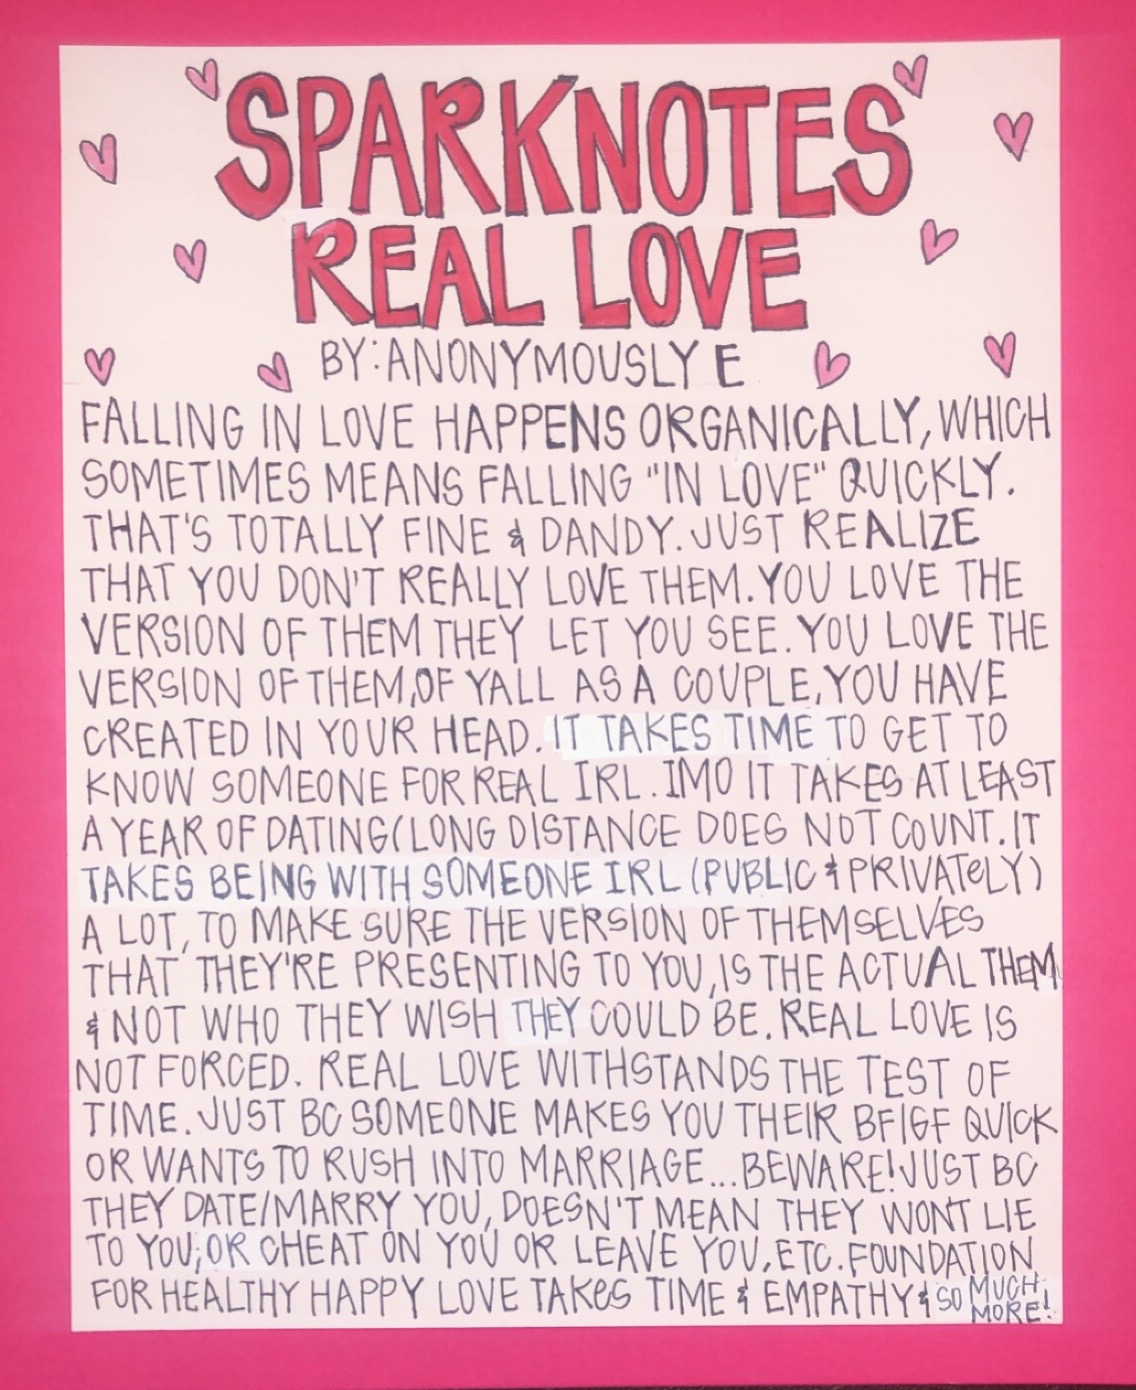 SPARKNOTES
REAL LOVE
BY: ANONYMOUSLY E
FALLING IN LOVE HAPPENS ORGANICALLY, WHICH
SOMETIMES MEANS FALLING "IN LOVE" QUICKLY.
THAT'S TOTALLY FINE & DANDY. JUST REALIZE
THAT YOU DON'T REALLY LOVE THEM. YOU LOVE THE
VERSION OF THEM THEY LET YOU SEE. YOU LOVE THE
VERSION OF THEM, OF YALL AS A COUPLE, YOU HAVE
CREATED IN YOUR HEAD. IT TAKES TIME TO GET TO
KNOW SOMEONE FOR REAL IRL. IMO IT TAKES AT LEAST
A YEAR OF DATING (LONG DISTANCE DOES NOT COUNT. IT
TAKES BEING WITH SOMEONE IRL (PUBLIC & PRIVATELY)
A LOT, TO MAKE SURE THE VERSION OF THEMSELVES
THAT THEY'RE PRESENTING TO YOU, IS THE ACTUAL THEM
& NOT WHO THEY WISH THEY COULD BE. REAL LOVE IS
NOT FORCED. REAL LOVE WITHSTANDS THE TEST OF
TIME. JUST BC SOMEONE MAKES YOU THEIR BF/GF QUICK
OR WANTS TO RUSH INTO MARRIAGE... BEWARE! JUST BC
THEY DATE/MARRY YOU, DOESN'T MEAN THEY WONT LIE
TO YOU, OR CHEAT ON YOU OR LEAVE YOU, ETC. FOUNDATION
FOR HEALTHY HAPPY LOVE TAKES TIME & EMPATHY & SO MUCH
MORE!